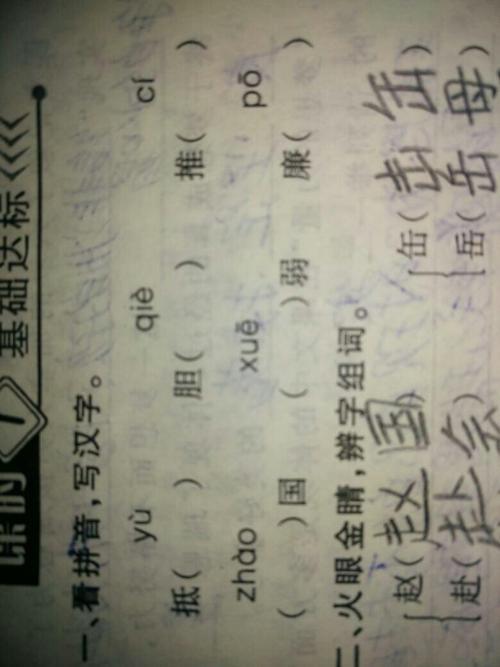 课时1 基础达标
一、看拼音，写汉字。
yù qiè cí
抵( ) 胆( ) 推( )
zhào xuē pō
( )国 ( )弱 廉( )
二、火眼金睛，辨字组词。
赵(赵国) 缶(击缶)
赴(赴会) 岳(岳母)